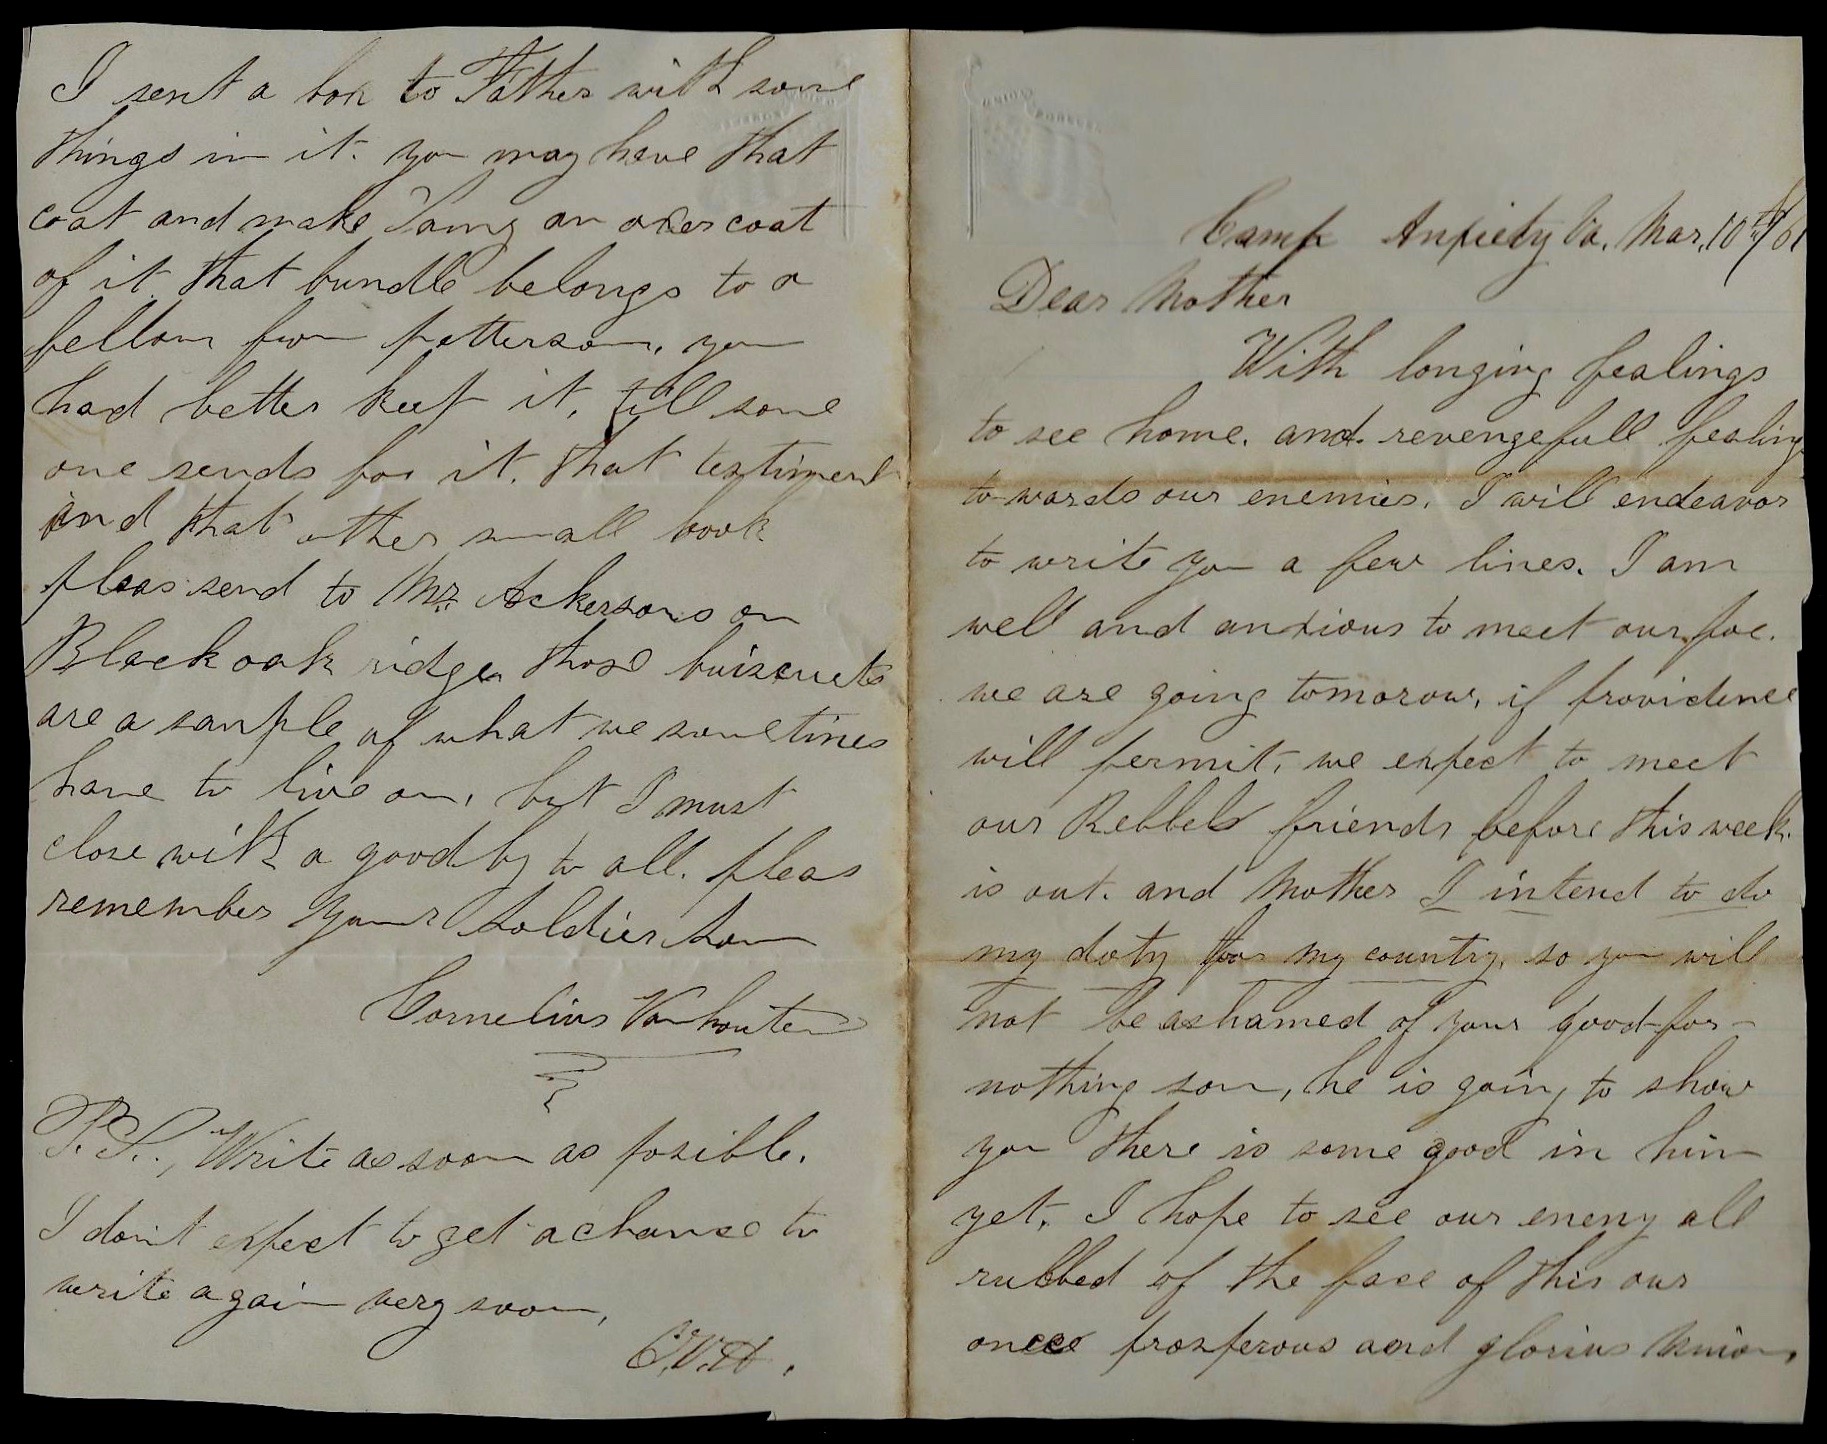 Camp Anxiety Va. Mar. 10th/61
Dear Mother
With longing fealings
to see home. and. revengefull fealing
to-wards our enemies. I will endeavor
to write you a few lines. I am
well and anxious to meet our foe.
we are going tomorow, if providence
will permit, we expect to meet
our Rebbels friends before this week.
is out. and Mother I intend to do
my doty for my country, so you will
not be ashamed of your good-for-
nothing son, he is going to show
you there is some good in him
yet. I hope to see our enemy all
rubbed of the face of this our
once prosperous and glorius Union,
I sent a box to Father with some
things in it. you may have that
coat and make an over coat
of it. that bundle belongs to a
fellow from patterson, you
had better keep it, till some
one sends for it. that testiment
and that other small book
pleas send to Mr. Ackersons on
Black oak ridge those buiscuets
are a sample of what we sometimes
have to live on, but I must
close with a good by to all. pleas
remember your Soldier Son
Cornelius Vanhouten
P.S., Write as soon as posible.
I don't expect to get a chance to
write again very soon,
C.V.H.
UNION FOREVER